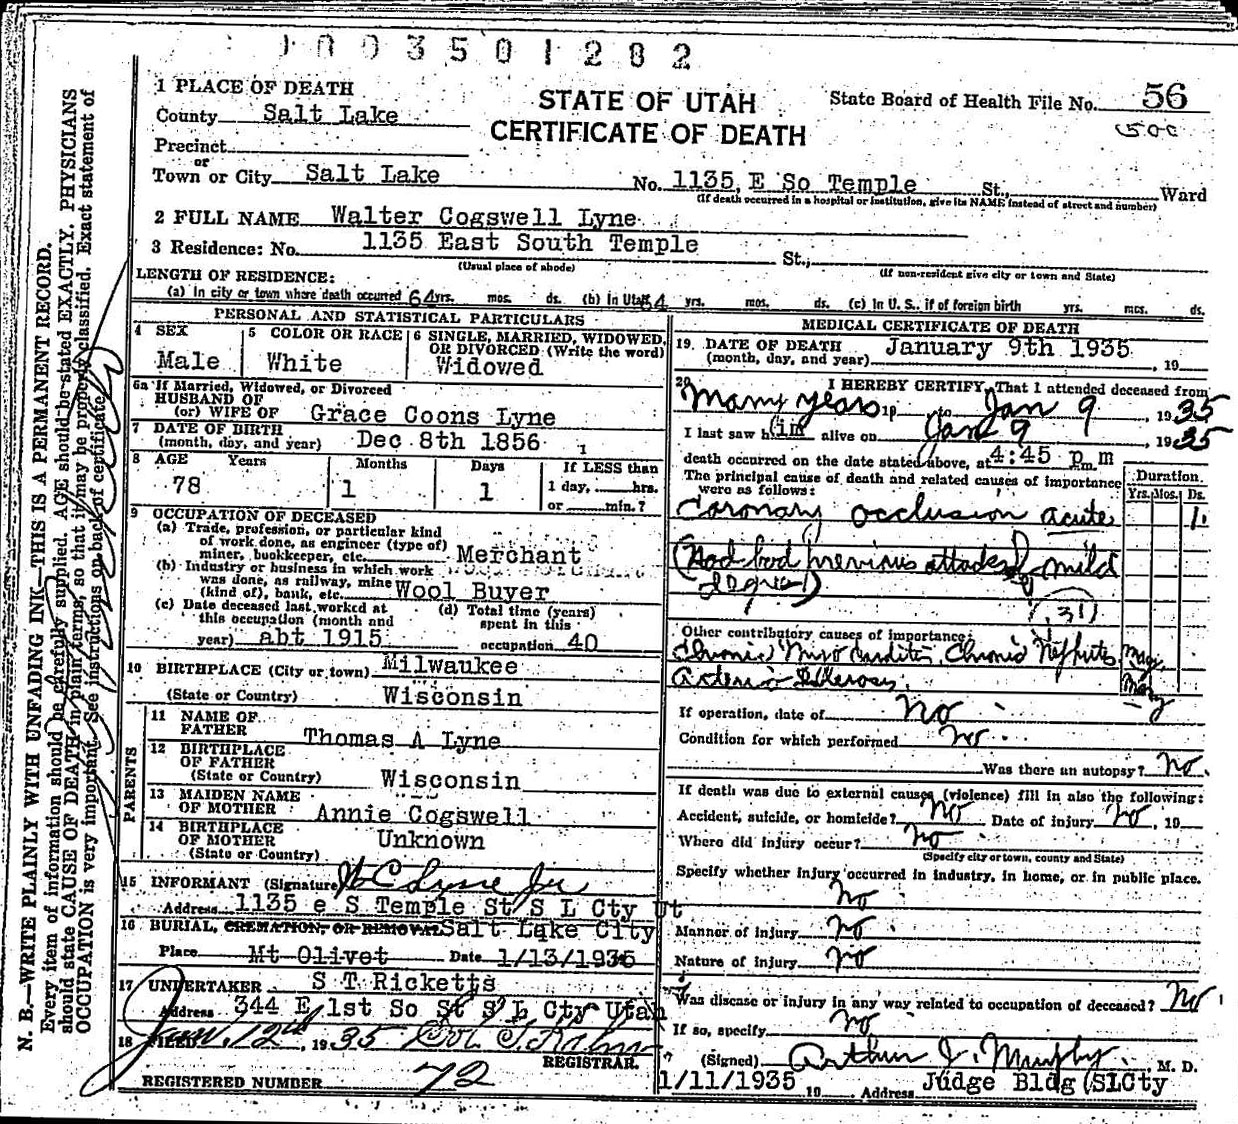 1003501282
1 PLACE OF DEATH
County Salt Lake
Precinct
or
Town or City Salt Lake
STATE OF UTAH
CERTIFICATE OF DEATH
State Board of Health File No. 56
500
No. 1135, E So Temple St., Ward
(If death occurred in a hospital or institution, give its NAME instead of street and number)
2 FULL NAME Walter Cogswell Lyne
3 Residence: No. 1135 East South Temple St.,
(Usual place of abode) (If non-resident give city or town and State)
LENGTH OF RESIDENCE:
(a) In city or town where death occurred 64 yrs. mos. ds. (b) In Utah 64 yrs. mos. ds. (c) In U. S., if of foreign birth yrs. mos. ds.
PERSONAL AND STATISTICAL PARTICULARS
4 SEX
Male
5 COLOR OR RACE
White
6 SINGLE, MARRIED, WIDOWED,
OR DIVORCED (Write the word)
Widowed
6a If Married, Widowed, or Divorced
HUSBAND OF
(or) WIFE OF Grace Coons Lyne
7 DATE OF BIRTH
(month, day, and year) Dec 8th 1856
8 AGE Years Months Days If LESS than
78 1 1 1 day, hrs.
or min.?
9 OCCUPATION OF DECEASED
(a) Trade, profession, or particular kind
of work done, as engineer (type of)
miner, bookkeeper, etc. Merchant
(b) Industry or business in which work
was done, as railway, mine
(kind of), bank, etc. Wool Buyer
(c) Date deceased last worked at
this occupation (month and
year) abt 1915
(d) Total time (years)
spent in this
occupation 40
10 BIRTHPLACE (City or town) Milwaukee
(State or Country) Wisconsin
PARENTS
11 NAME OF
FATHER Thomas A Lyne
12 BIRTHPLACE
OF FATHER
(State or Country) Wisconsin
13 MAIDEN NAME
OF MOTHER Annie Cogswell
14 BIRTHPLACE
OF MOTHER Unknown
(State or Country)
15 INFORMANT (Signature) W C Lyne Jr
Address 1135 e S Temple St S L Cty Ut
16 BURIAL, CREMATION, OR REMOVAL Salt Lake City
Place Mt Olivet Date 1/13/1935
17 UNDERTAKER S T Ricketts
Address 344 E 1st So St S L Cty Utah
18 FILED Jan. 12th, 1935
REGISTRAR.
REGISTERED NUMBER 72
MEDICAL CERTIFICATE OF DEATH
19. DATE OF DEATH January 9th 1935
(month, day, and year) , 19
20 I HEREBY CERTIFY, That I attended deceased from
Many years 19 to Jan 9 1935
I last saw him alive on Jan 9 1935
death occurred on the date stated above, at 4:45 p m m
The principal cause of death and related causes of importance
were as follows:
Duration
Yrs. Mos. Ds.
Coronary occlusion acute 1
(Had had previous attacks of mild
degree)
(31)
Other contributory causes of importance:
Chronic Myocarditis, Chronic Nephritis Many
Arterio Sclerosis. Many
If operation, date of No
Condition for which performed No
Was there an autopsy? No.
If death was due to external causes (violence) fill in also the following:
Accident, suicide, or homicide? No Date of injury No, 19
Where did injury occur? No
(Specify city or town, county and State)
Specify whether injury occurred in industry, in home, or in public place.
No
Manner of injury No
Nature of injury No
Was disease or injury in any way related to occupation of deceased? No
If so, specify No
(Signed) Arthur J. Murphy, M. D.
1/11/1935 19 Address Judge Bldg (SLCty
N. B.—WRITE PLAINLY WITH UNFADING INK—THIS IS A PERMANENT RECORD.
Every item of information should be carefully supplied. AGE should be stated EXACTLY. PHYSICIANS
should state CAUSE OF DEATH in plain terms, so that it may be properly classified. Exact statement of
OCCUPATION is very important. See instructions on back of certificate.